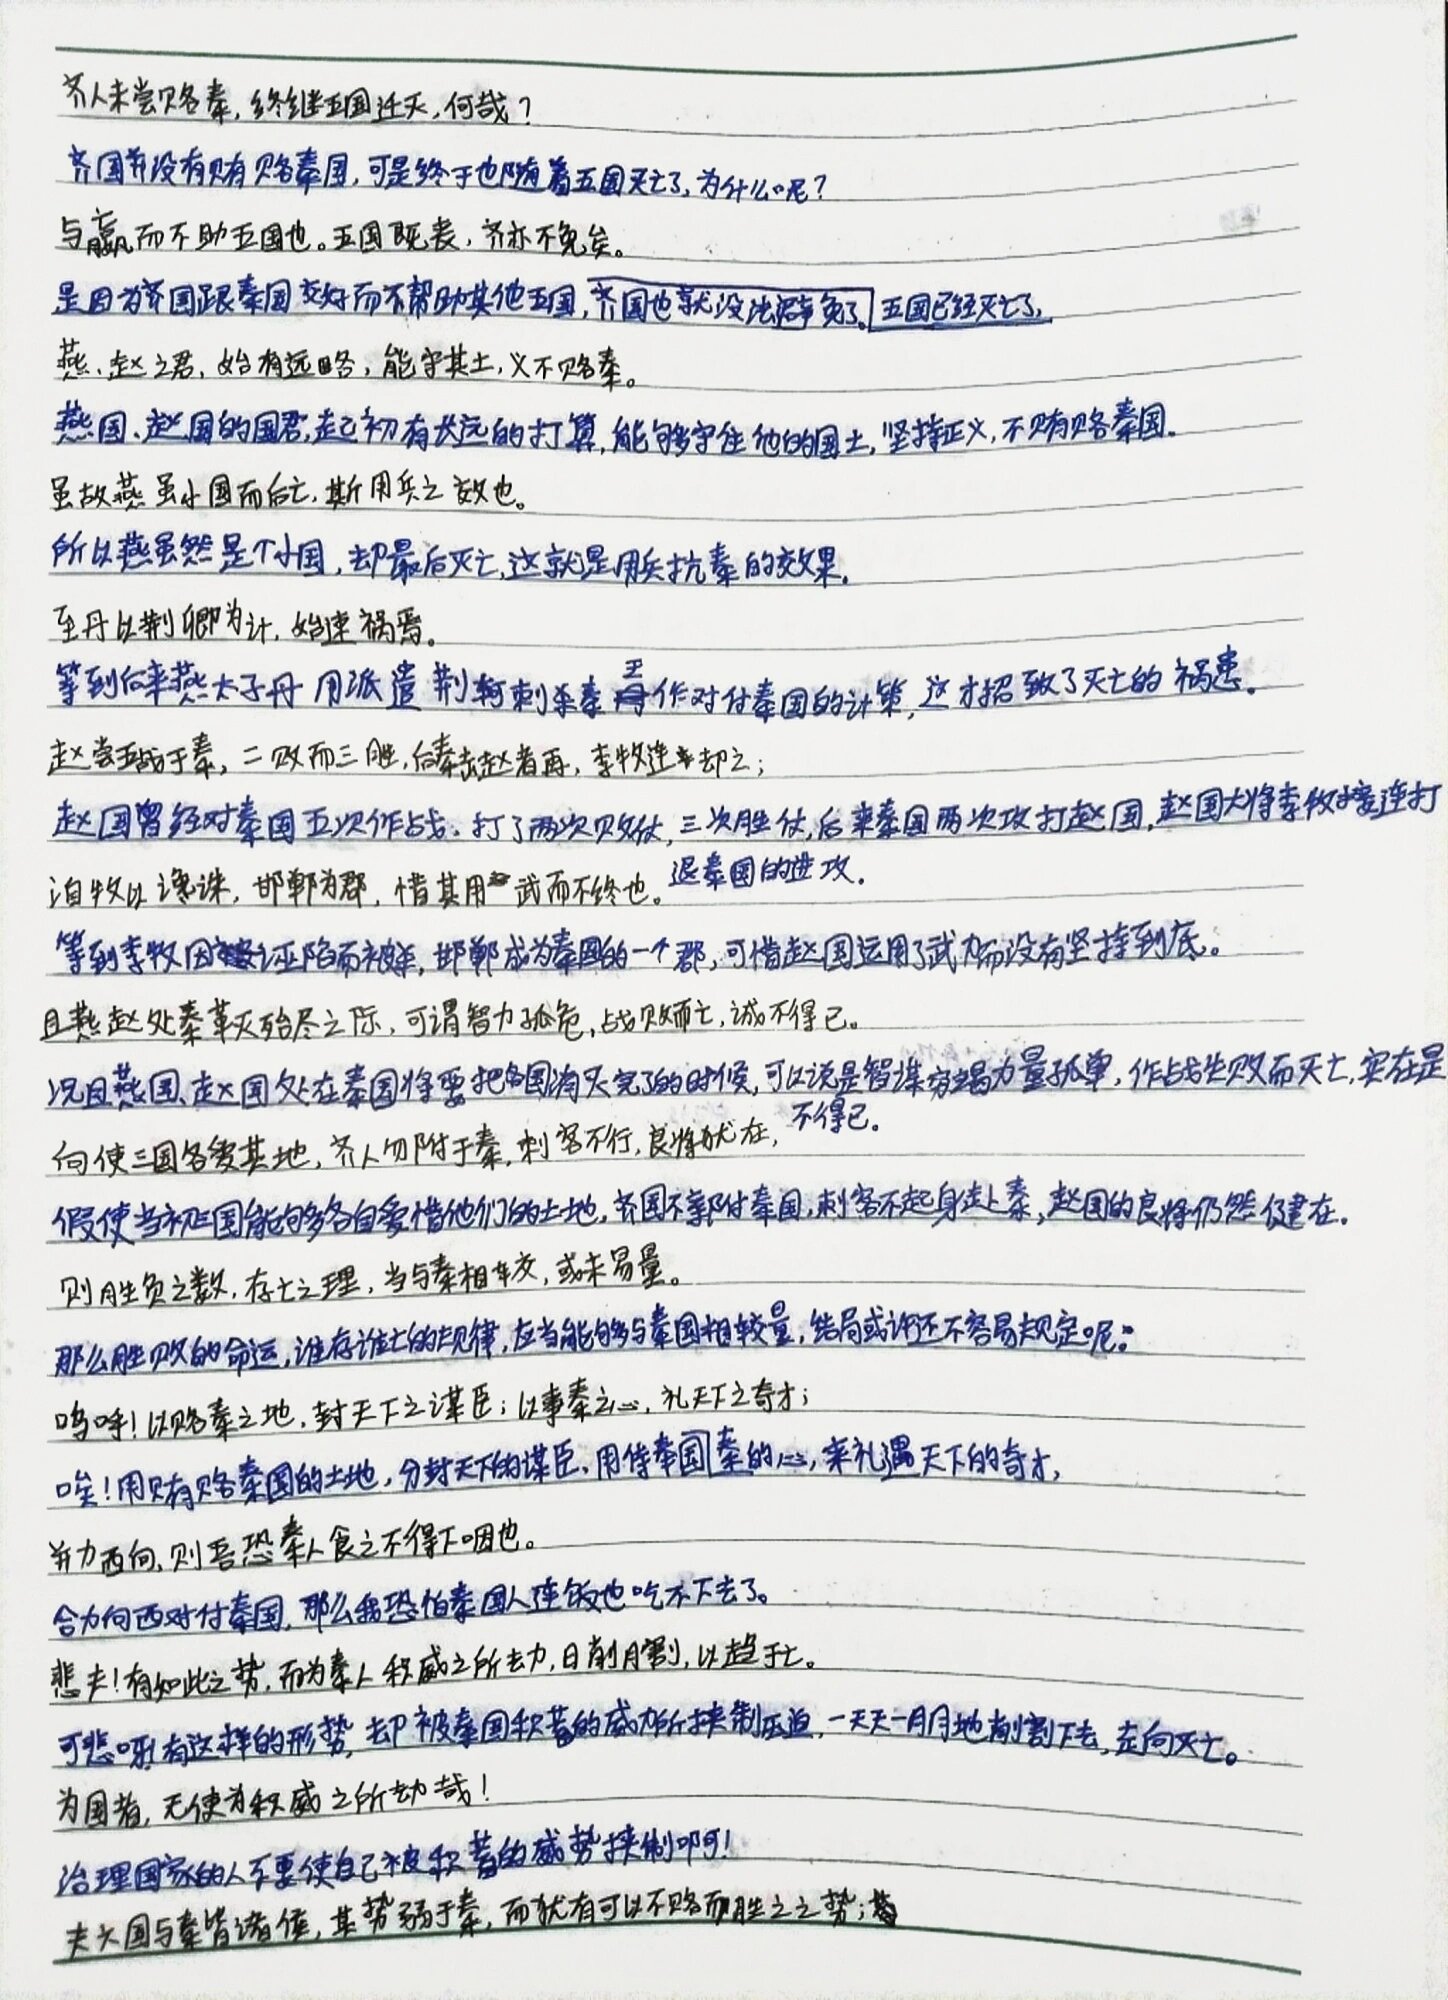 齐人未尝赂秦,终继五国迁灭,何哉?
齐国并没有贿赂秦国,可是终于也随着五国灭亡了,为什么呢?
与嬴而不助五国也。五国既丧,齐亦不免矣。
是因为齐国跟秦国交好而不帮助其他五国,齐国也就没法幸免了。五国已经灭亡了,
燕、赵之君,始有远略,能守其土,义不赂秦。
燕国、赵国的国君,起初有长远的打算,能够守住他的国土,坚持正义,不贿赂秦国。
虽故燕虽小国而后亡,斯用兵之效也。
所以燕虽然是个小国,却最后灭亡,这就是用兵抗秦的效果。
至丹以荆卿为计,始速祸焉。
等到后来燕太子丹用派遣荆轲刺杀秦王作对付秦国的计策,这才招致了灭亡的祸患。
赵尝五战于秦,二败而三胜,后秦击赵者再,李牧连却之;
赵国曾经对秦国五次作战,打了两次败仗,三次胜仗,后来秦国两次攻打赵国,赵国大将李牧接连打
退秦国的进攻.
洎牧以谗诛,邯郸为郡,惜其用武而不终也。
等到李牧因诬陷而被杀,邯郸成为秦国的一个郡,可惜赵国运用了武力而没有坚持到底。
且燕赵处秦革灭殆尽之际,可谓智力孤危,战败而亡,诚不得已。
况且燕国、赵国处在秦国将要把各国消灭完了的时候,可以说是智谋穷竭力量孤单,作战失败而灭亡,实在是
不得已。
向使三国各爱其地,齐人勿附于秦,刺客不行,良将犹在,
假使当初三国能够各自爱惜他们的土地,齐国不亲附秦国,刺客不起身赴秦,赵国的良将仍然健在.
则胜负之数,存亡之理,当与秦相较,或未易量。
那么胜败的命运,谁存谁亡的规律,应当能够与秦国相较量,结局或许还不容易规定呢。
呜呼!以赂秦之地,封天下之谋臣;以事秦之心,礼天下之奇才;
唉!用贿赂秦国的土地,分封天下的谋臣、用侍奉国秦的心,来礼遇天下的奇才,
并力西向,则吾恐秦人食之不得下咽也。
合力向西对付秦国,那么我恐怕秦国人连饭也吃不下去了。
悲夫!有如此之势,而为秦人积威之所劫,日削月割,以趋于亡。
可悲呀!有这样的形势,却被秦国积蓄的威力所挟制压迫,一天天一月月地削割下去,走向灭亡。
为国者,无使为积威之所劫哉!
治理国家的人不要使自己被积蓄的威势挟制啊!
夫六国与秦皆诸侯,其势弱于秦,而犹有可以不赂而胜之之势;